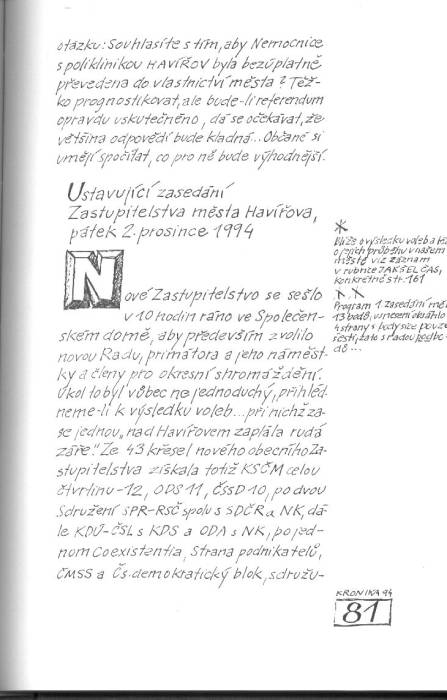 otázku: Souhlasíte s tím, aby Nemocnice
s poliklinikou HAVÍŘOV byla bezúplatně
převedena do vlastnictví města? Těž-
ko prognostikovat, ale bude-li referendum
opravdu uskutečněno, dá se očekávat, že
většina odpovědí bude kladná... Občané si
umějí spočítat, co pro ně bude výhodnější.
Ustavující zasedání
Zastupitelstva města Havířova,
pátek 2. prosince 1994
Nové Zastupitelstvo se sešlo
v 10 hodin ráno ve Společen-
ském domě, aby především zvolilo
novou Radu, primátora a jeho náměst-
ky a členy pro okresní shromáždění.
Úkol to byl vůbec ne jednoduchý, přihléd-
neme-li k výsledku voleb... při nichž za-
se jednou „nad Havířovem zaplála rudá
záře". Ze 43 křesel nového obecního Za-
stupitelstva získala totiž KSČM celou
čtvrtinu - 12, ODS 11, ČSSD 10, po dvou
Sdružení SPR-RSČ spolu s SDČR a NK, dá-
le KDU-ČSL s KDS a ODA s NK, po jed-
nom Coexistentia, Strana podnikatelů,
ČMSS a Čs. demokratický blok, sdružu-
*
Blíže o výsledku voleb a též
o jejich průběhu v našem
městě viz záznam
v rubrice JAK ŠEL ČAS,
konkrétně str. 161
**
Program 1. zasedání měl
13 bodů, usnesení obsáhlo
4 strany s body sice pouze
šesti, zato s řadou podbo-
dů...
KRONIKA 94
81